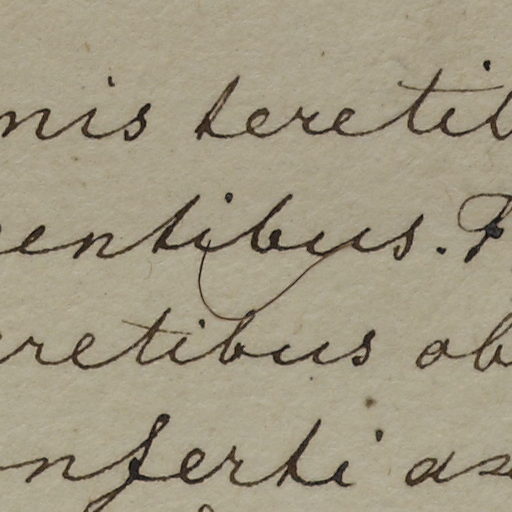 nis teretib
entibus. F
retibus ob
nferti as